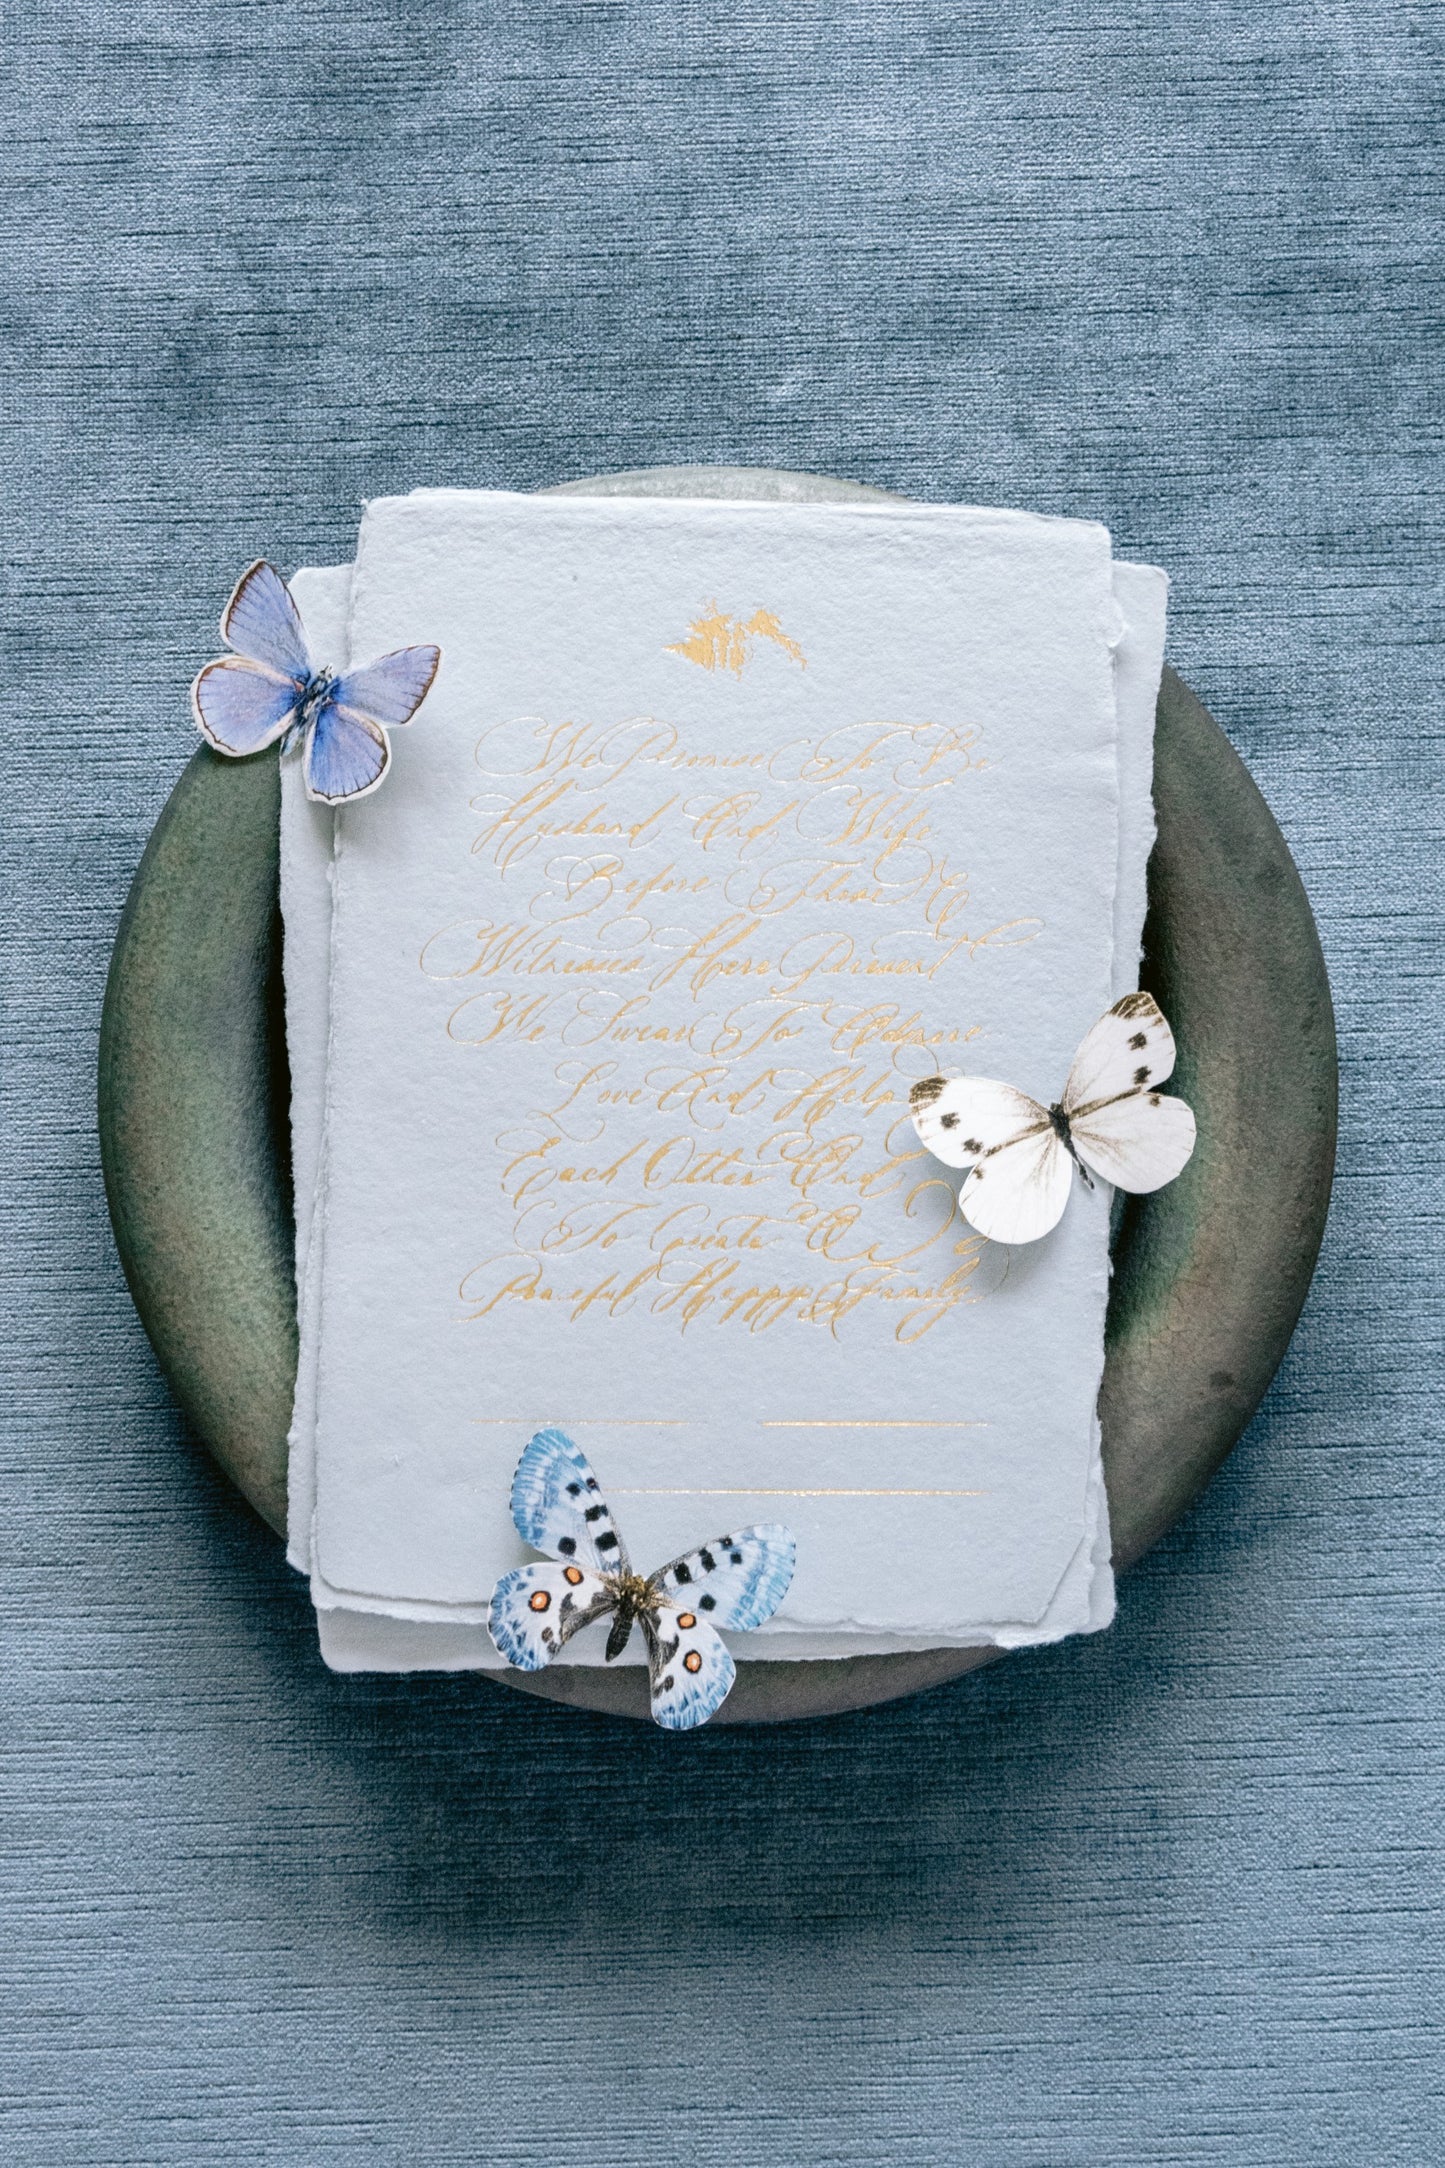 We Promise To Be
Husband And Wife
Before Those
Witnesses Here Present
We Swear To Adore
Love And Help
Each Other And
To Create A
Peaceful Happy Family